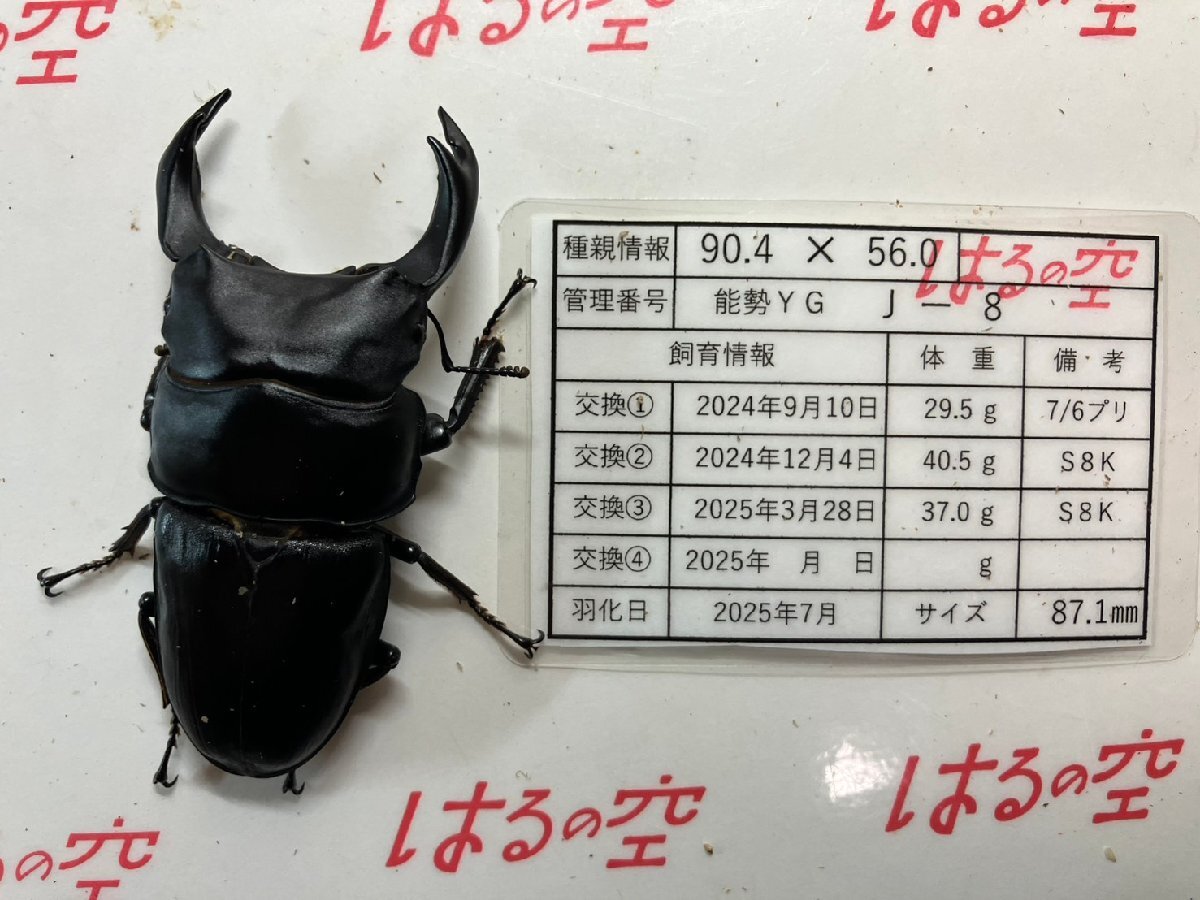 の空
はるの空
はるの空
種親情報 90.4 × 56.0
はるの空
管理番号 能勢YG J － 8
飼育情報 体 重 備 考
交換① 2024年9月10日 29.5 g 7/6プリ
交換② 2024年12月4日 40.5 g S8K
交換③ 2025年3月28日 37.0 g S8K
交換④ 2025年 月 日 g
羽化日 2025年7月 サイズ 87.1㎜
はるの空
はるの空
の空